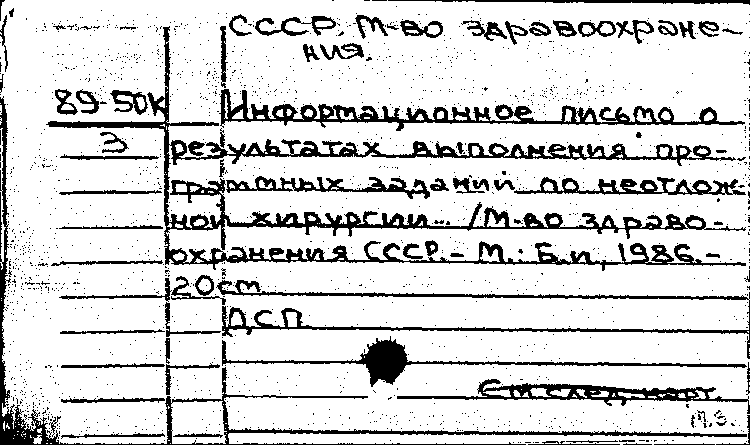 СССР. М-во здравоохране-
ния.
89-50к
Информационное письмо о
3
результатах выполнения про-
граммных заданий по неотлож-
ной хирургии... /М-во здраво-
охранения СССР.- М.: Б.и., 1986.-
20 см
ДСП
См след. карт.